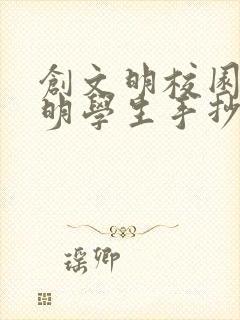 創文明校園
明學生手抄
瑶卿